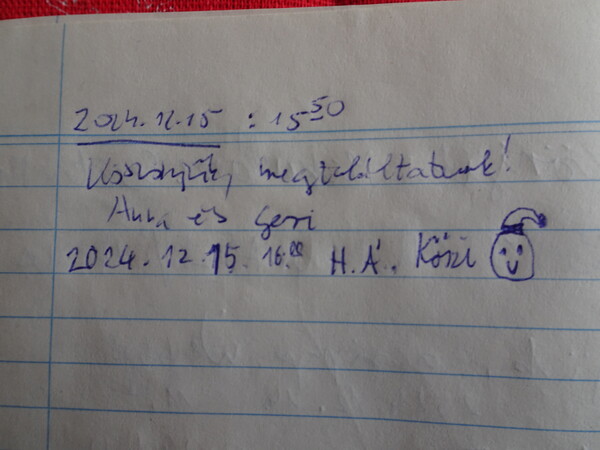 2024.12.15 : 15 50
Köszönjük, megtaláltatunk!
Anna és Geri
2024.12.15. 16.00 H.Á. Köszi